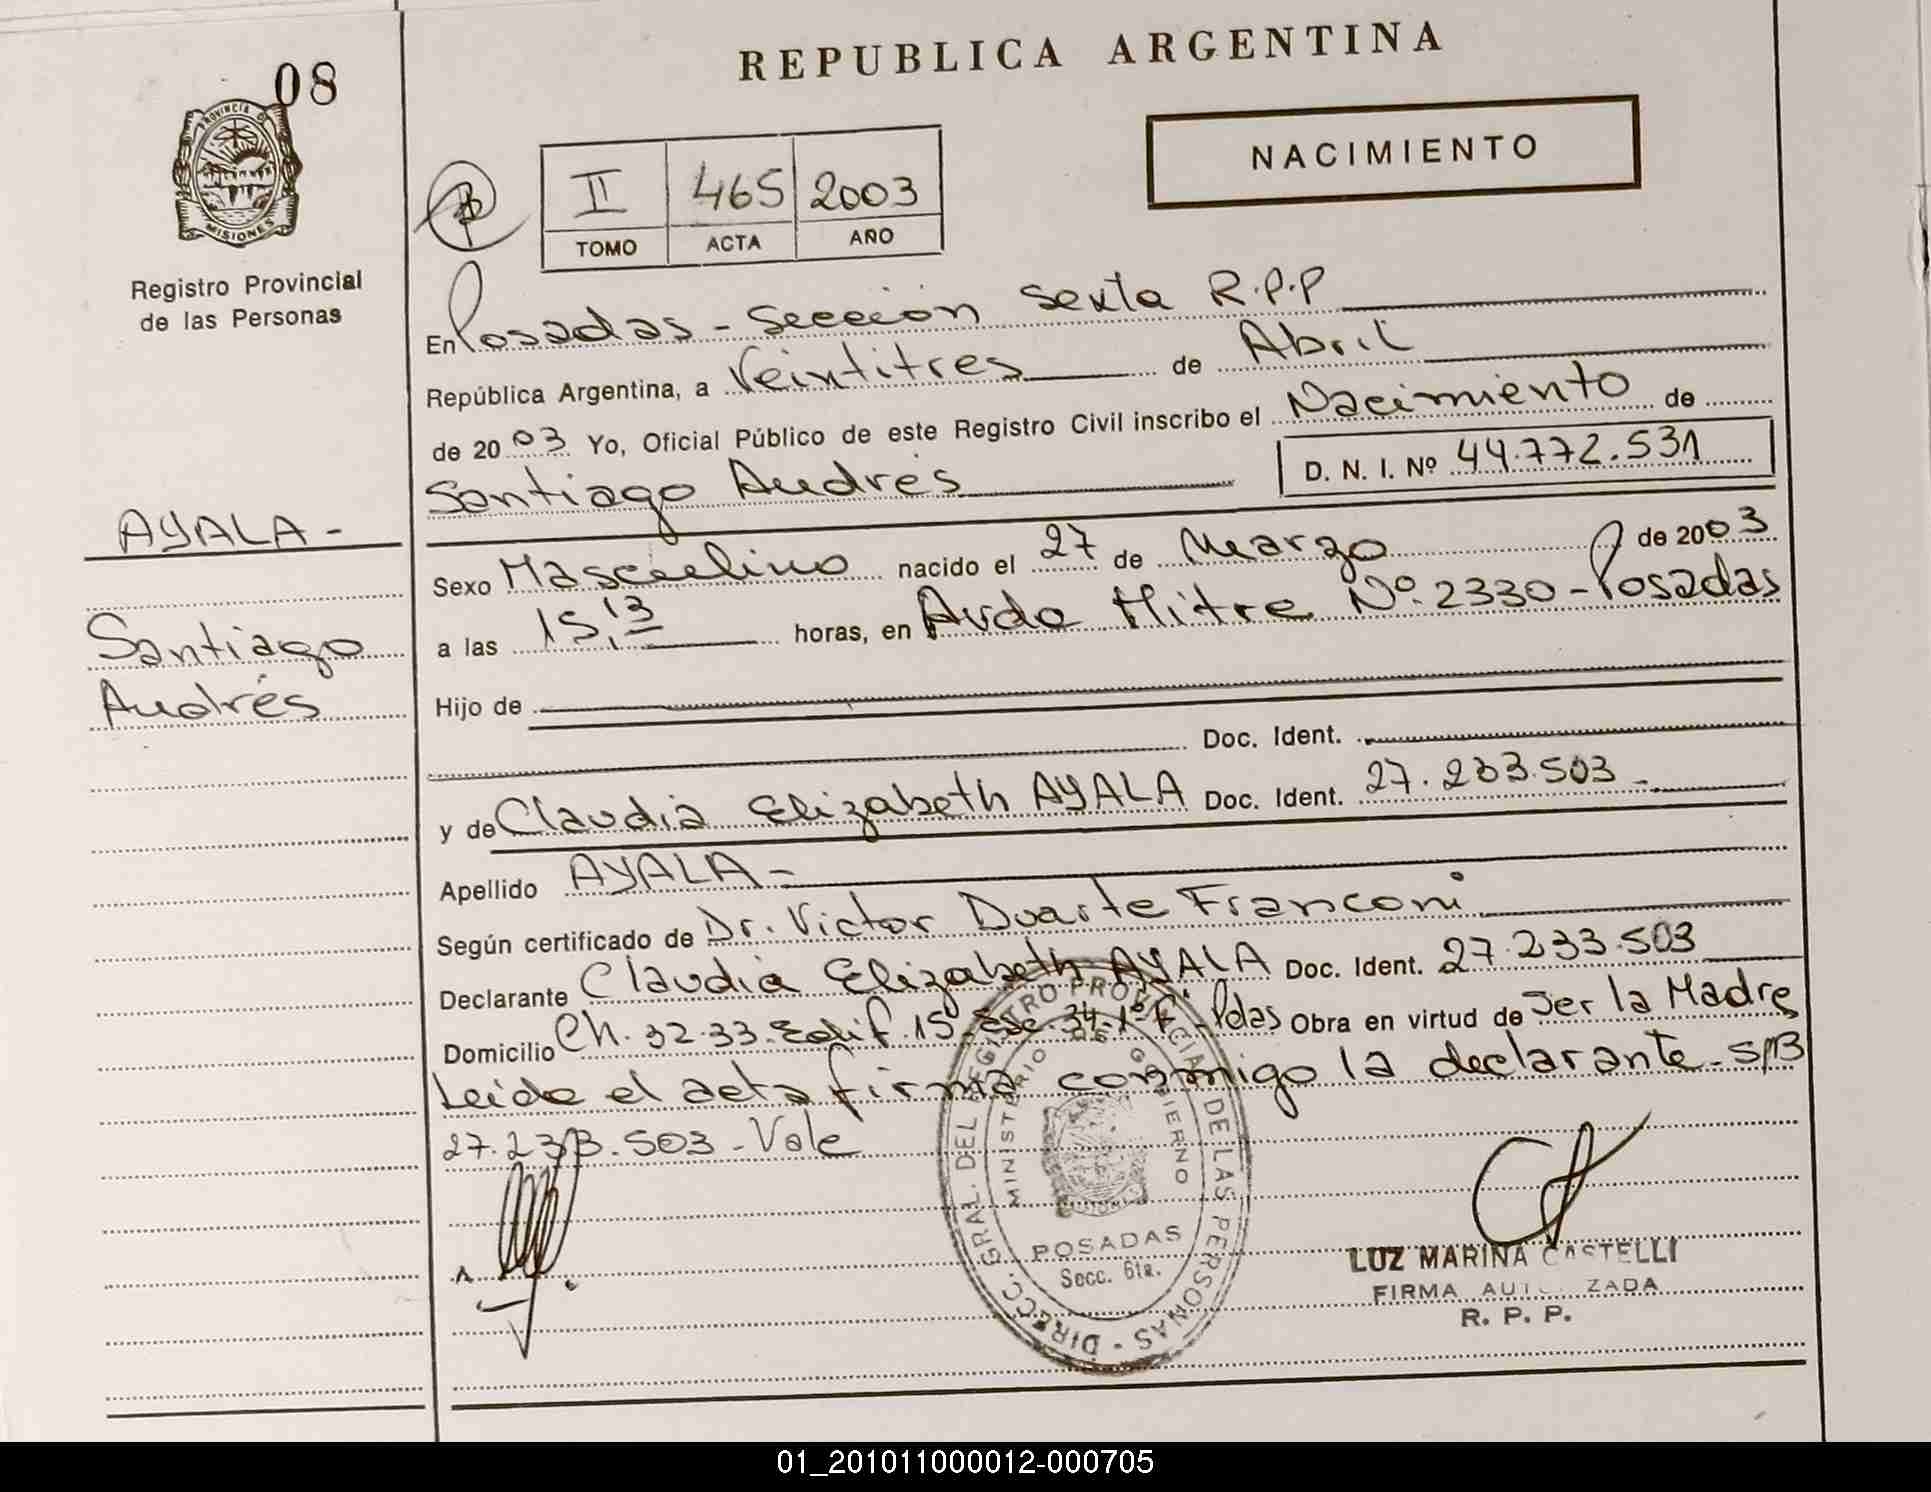 08
REPUBLICA ARGENTINA
PROVINCIA DE MISIONES
Registro Provincial
de las Personas
NACIMIENTO
II 465 2003
TOMO ACTA AÑO
En Posadas - Sección Sexta R.P.P
República Argentina, a Veintitres de Abril
de 2003 Yo, Oficial Público de este Registro Civil inscribo el Nacimiento de
Santiago Andrés D. N. I. Nº 44.772.531
AYALA-
Santiago
Andrés
Sexo Masculino nacido el 27 de Marzo de 2003
a las 15,13 horas, en Avda Mitre Nº.2330-Posadas
Hijo de
Doc. Ident.
y de Claudia Elizabeth AYALA Doc. Ident. 27.233.503-
Apellido AYALA-
Según certificado de Dr. Victor Duarte Franconi
Declarante Claudia Elizabeth AYALA Doc. Ident. 27.233.503
Domicilio Ch. 32-33. Edif. 15 Esc. 34-1º F - Pdas Obra en virtud de Ser la Madre
Leida el acta firma conmigo la declarante - S/B
27.233.503 - Vale
DIRECC. GRAL. DEL REGISTRO PROVINCIAL DE LAS PERSONAS -
MINISTERIO DE GOBIERNO
POSADAS
Secc. 6ta.
LUZ MARINA CASTELLI
FIRMA AUT ZADA
R. P. P.
01_201011000012-000705